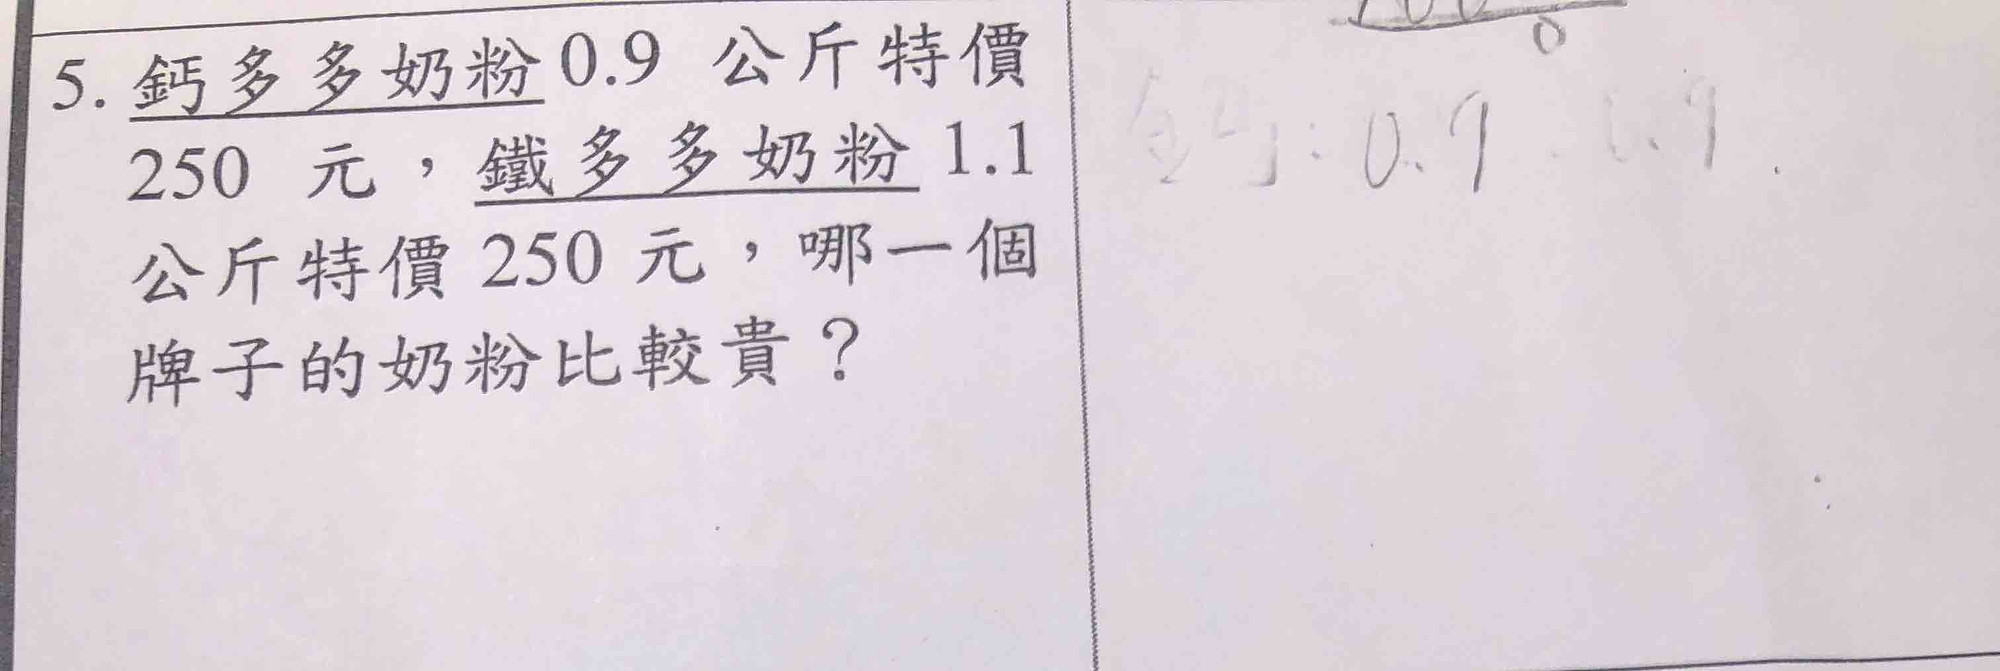 5. 鈣多多奶粉0.9 公斤特價
250 元，鐵多多奶粉 1.1
公斤特價 250 元，哪一個
牌子的奶粉比較貴？
0
鈣: 0.9